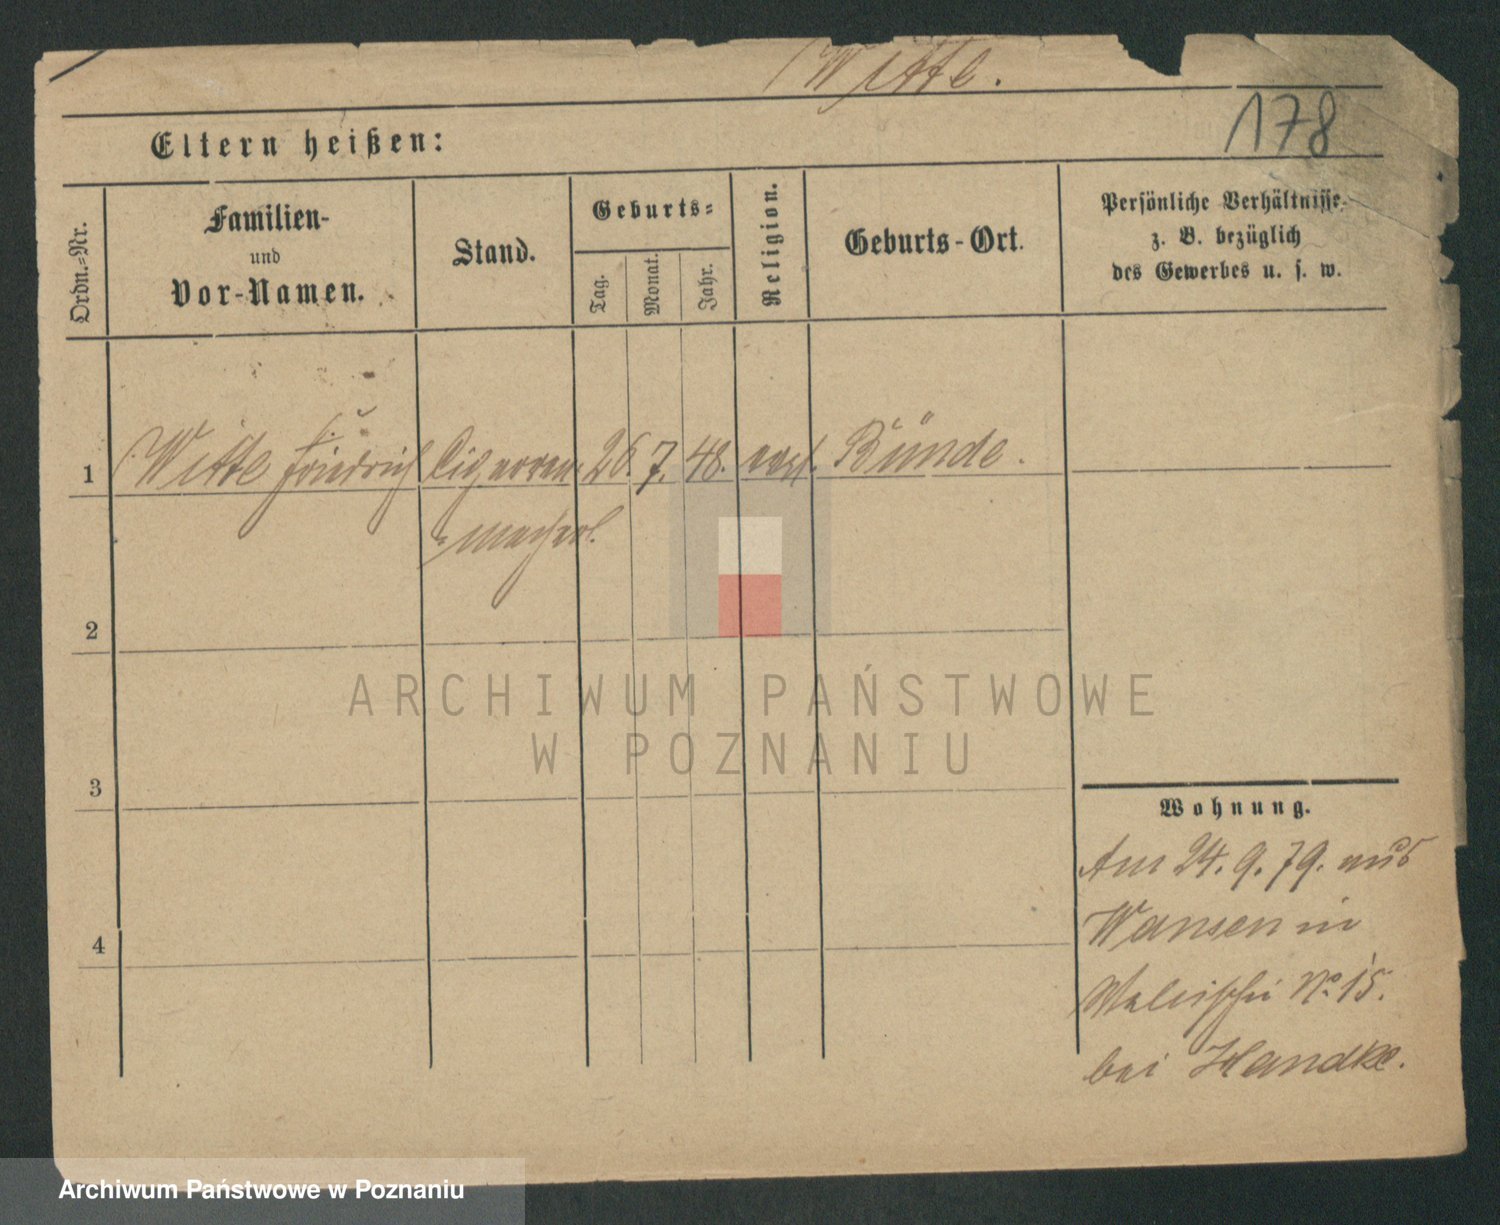 Witte.
178
Eltern heißen:
Ordn.-Nr.
Familien-
und
Vor-Namen.
Stand.
Geburts-
Tag.
Monat.
Jahr.
Religion.
Geburts-Ort.
Persönliche Verhältnisse
z. B. bezüglich
des Gewerbes u. s. w.
1 Witte Friedrich Cigarren 26. 7. 48. evgl. Bünde.
2
3
4
Wohnung.
Am 24. 9. 79. aus
Wansen in
Walischei No. 15.
bei Handke.
ARCHIWUM PAŃSTWOWE
W POZNANIU
Archiwum Państwowe w Poznaniu